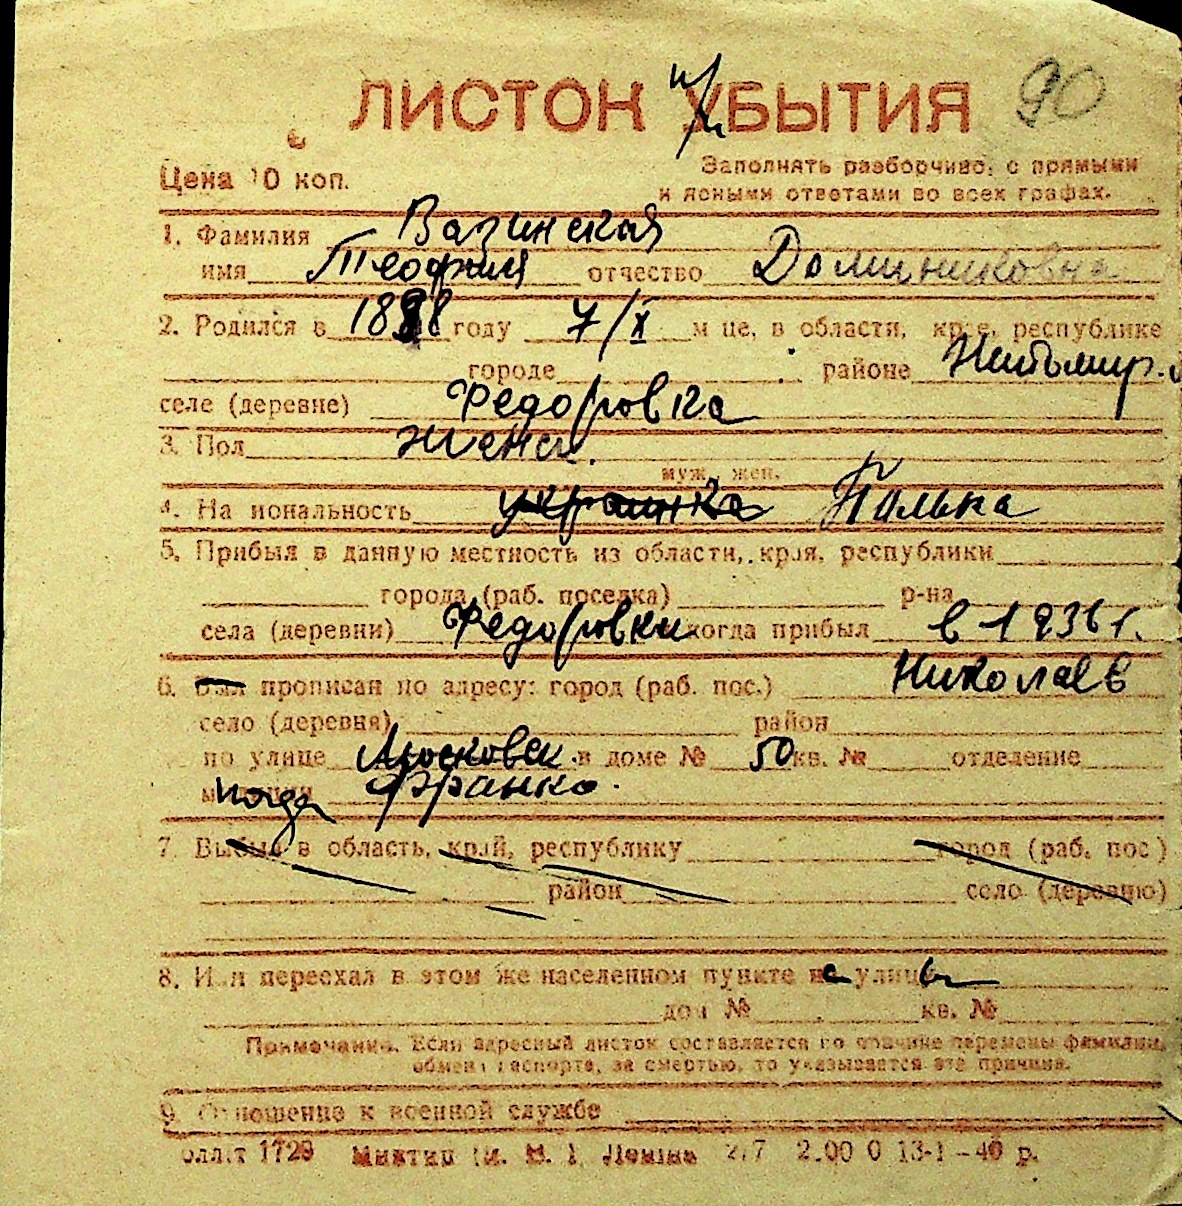 ЛИСТОК УБЫТИЯ 90
Цена 10 коп.
Заполнять разборчиво, с прямыми
и ясными ответами во всех графах.
1. Фамилия Вазинская
имя Теофилия отчество Доминиковна
2. Родился в 1898 году 7/X м це, в области, крае, республике
городе районе Житомир.
селе (деревне) Федоровка
3. Пол женск.
муж., жен.
4. На иональность украинка Полька
5. Прибыл в данную местность из области, края, республики
города (раб. поселка) р-на
села (деревни) Федоровки когда прибыл в 1936 г.
6. Был прописан по адресу: город (раб. пос.) Николаев
село (деревня) район
по улице Московск. в доме № 50 кв. № отделение
Франко.
7. Выбыл в область, край, республику город (раб. пос)
район село (деревню)
8. Или переехал в этом же населенном пункте на улицу
дом № кв. №
Примечание. Если адресный листок составляется по причине перемены фамилии,
обмен паспорта, за смертью, то указывается эта причина.
9. Отношение к военной службе
1729 Леніна 2.00 0 13-1-40 р.